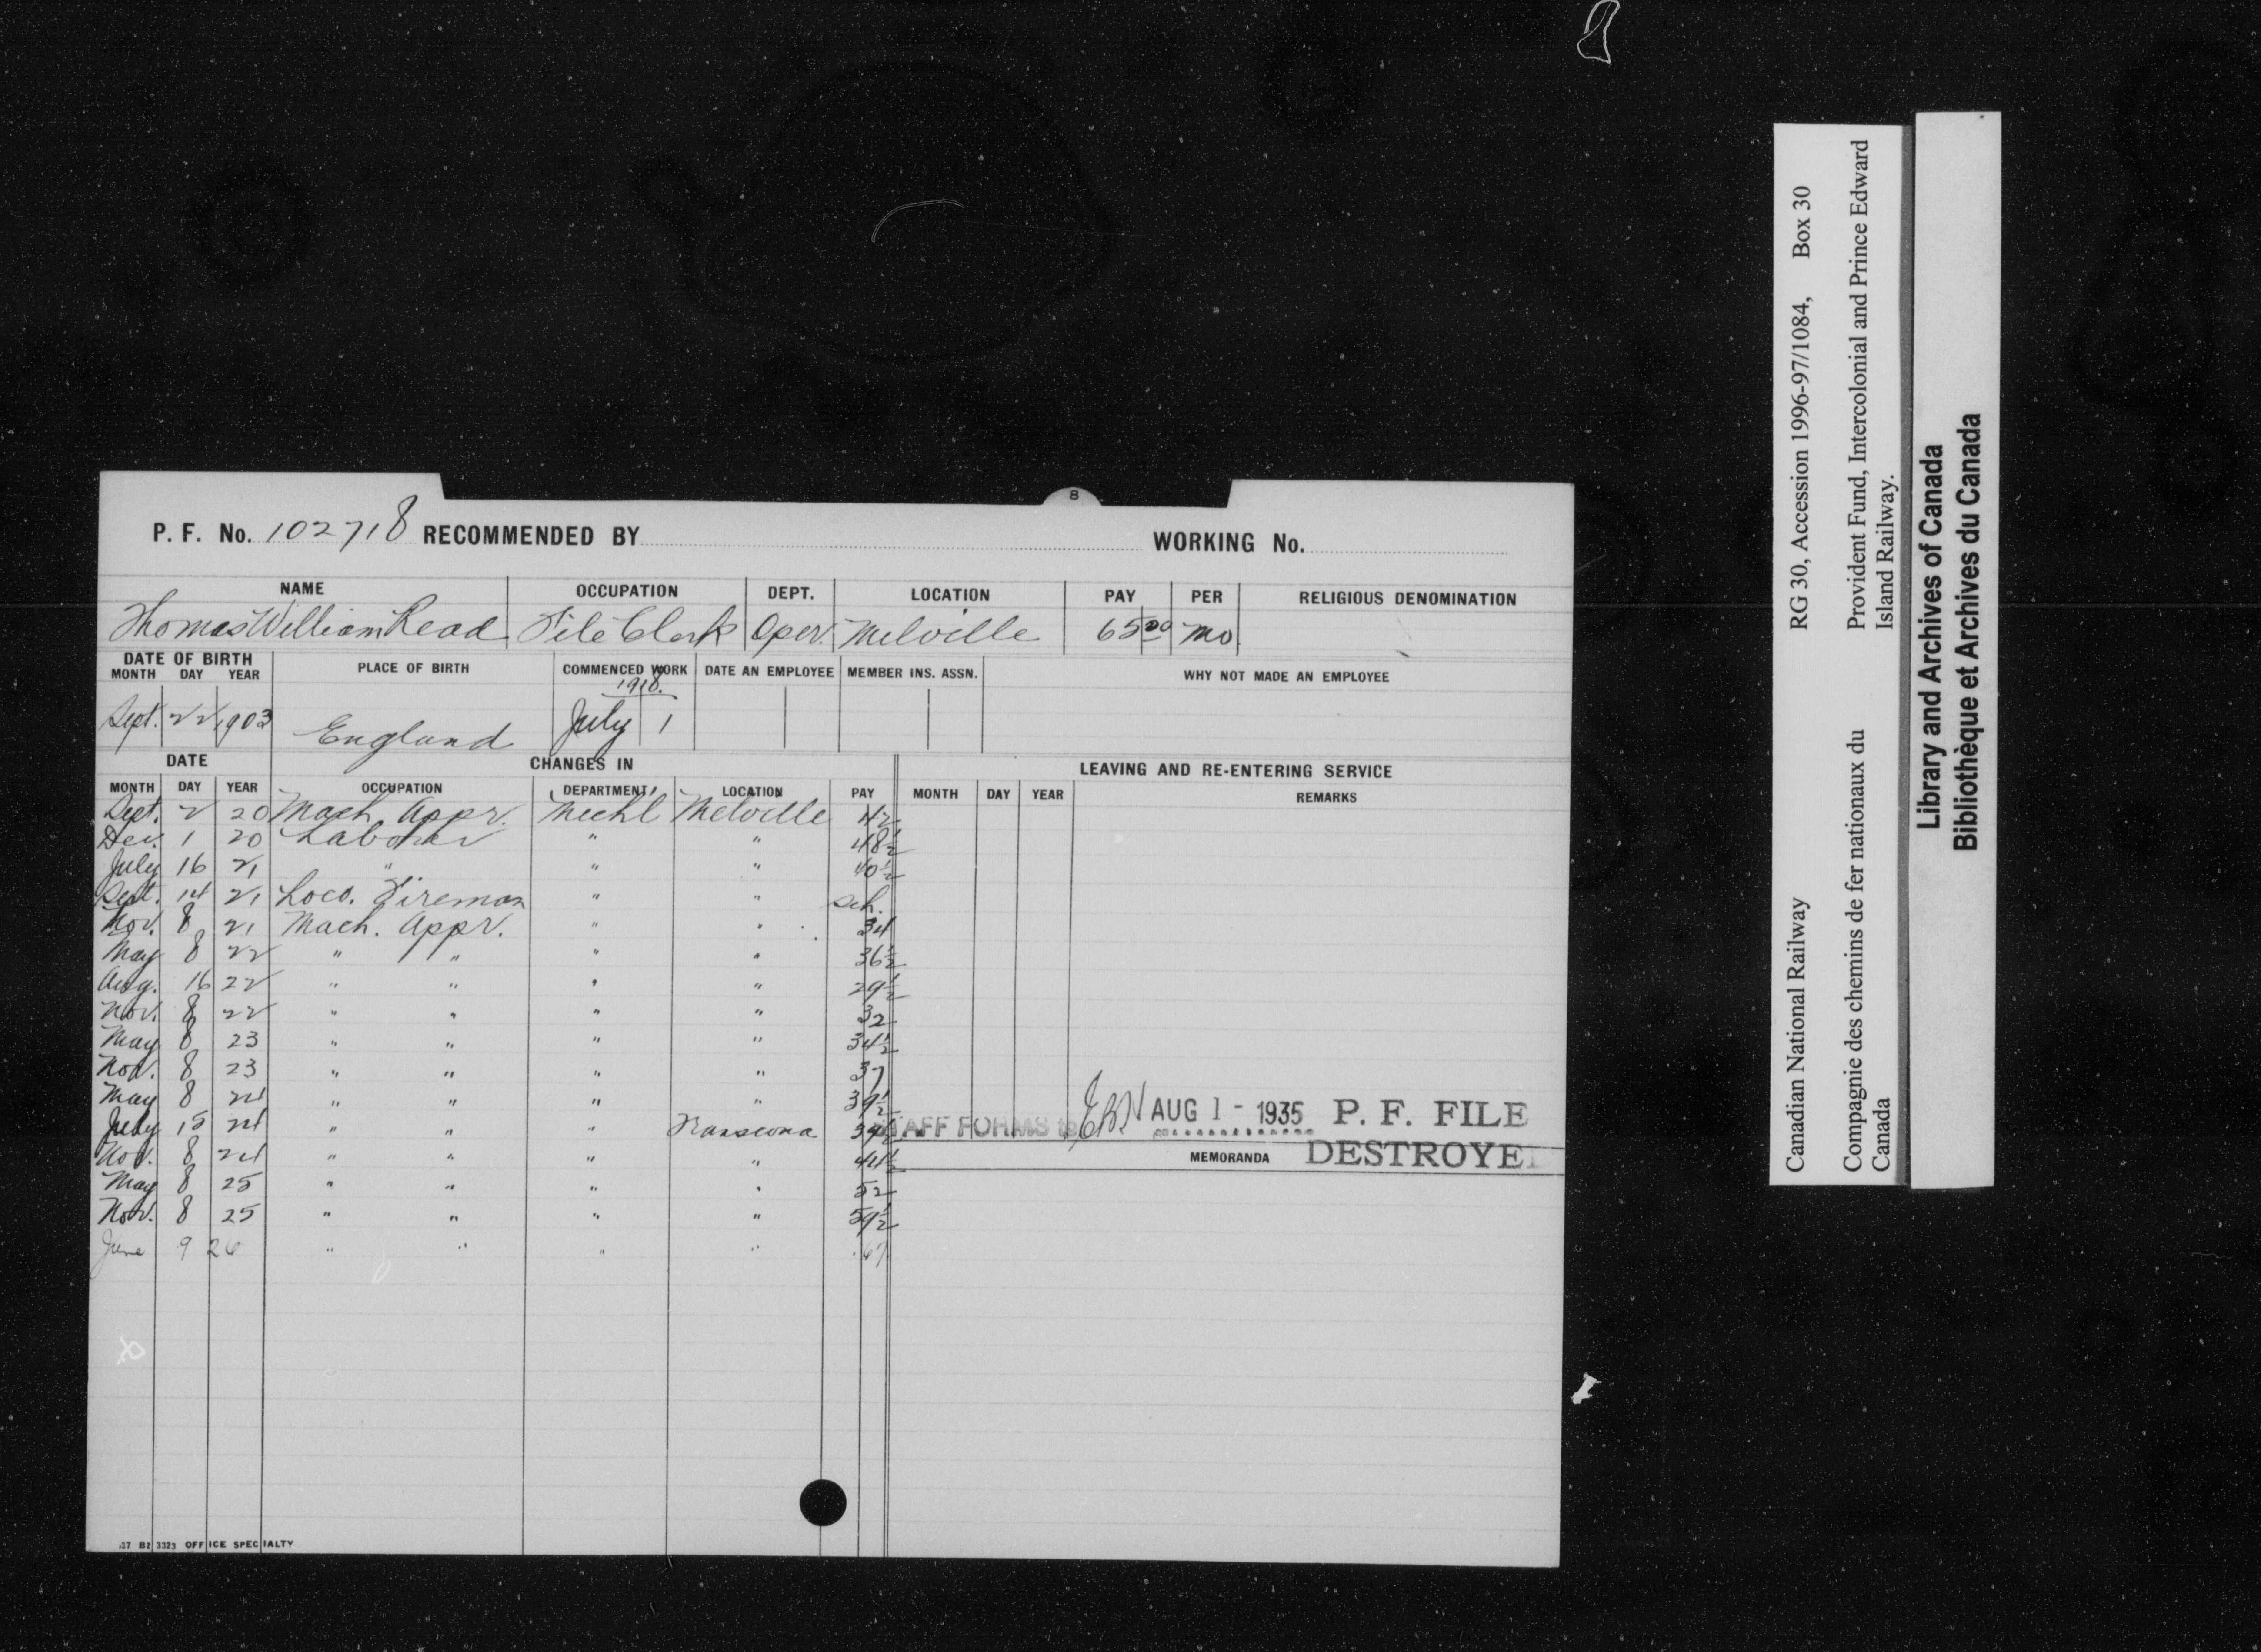 8
P. F. No. 102718 RECOMMENDED BY WORKING No.
NAME OCCUPATION DEPT. LOCATION PAY PER RELIGIOUS DENOMINATION
Thomas William Read File Clerk Oper. Melville 65 00 mo
DATE OF BIRTH PLACE OF BIRTH COMMENCED WORK DATE AN EMPLOYEE MEMBER INS. ASSN. WHY NOT MADE AN EMPLOYEE
MONTH DAY YEAR
1918.
Sept. 22 1903 England July 1
DATE CHANGES IN LEAVING AND RE-ENTERING SERVICE
MONTH DAY YEAR OCCUPATION DEPARTMENT LOCATION PAY MONTH DAY YEAR REMARKS
Sept. 2 20 Mach. Appr. Mechl Melville 42
Dec. 1 20 Laborer " " 48½
July 16 21 " " " 40½
Sept. 14 21 Loco. Fireman " " sch.
Nov. 8 21 Mach. Appr. " " 34
May 8 22 " " " " 36½
Aug. 16 22 " " " " 29½
Nov. 8 22 " " " " 32
May 8 23 " " " " 34½
Nov. 8 23 " " " " 37
May 8 24 " " " " 39½
July 15 24 " " " Transcona 39½
Nov. 8 24 " " " " 44½
May 8 25 " " " " 52
Nov. 8 25 " " " " 59½
June 9 26 " " " " 67
STAFF FORMS to AUG 1 - 1935 P. F. FILE
MEMORANDA DESTROYED
37 B2 3323 OFFICE SPECIALTY
Canadian National Railway RG 30, Accession 1996-97/1084, Box 30
Compagnie des chemins de fer nationaux du Provident Fund, Intercolonial and Prince Edward
Canada Island Railway.
Library and Archives of Canada
Bibliothèque et Archives du Canada